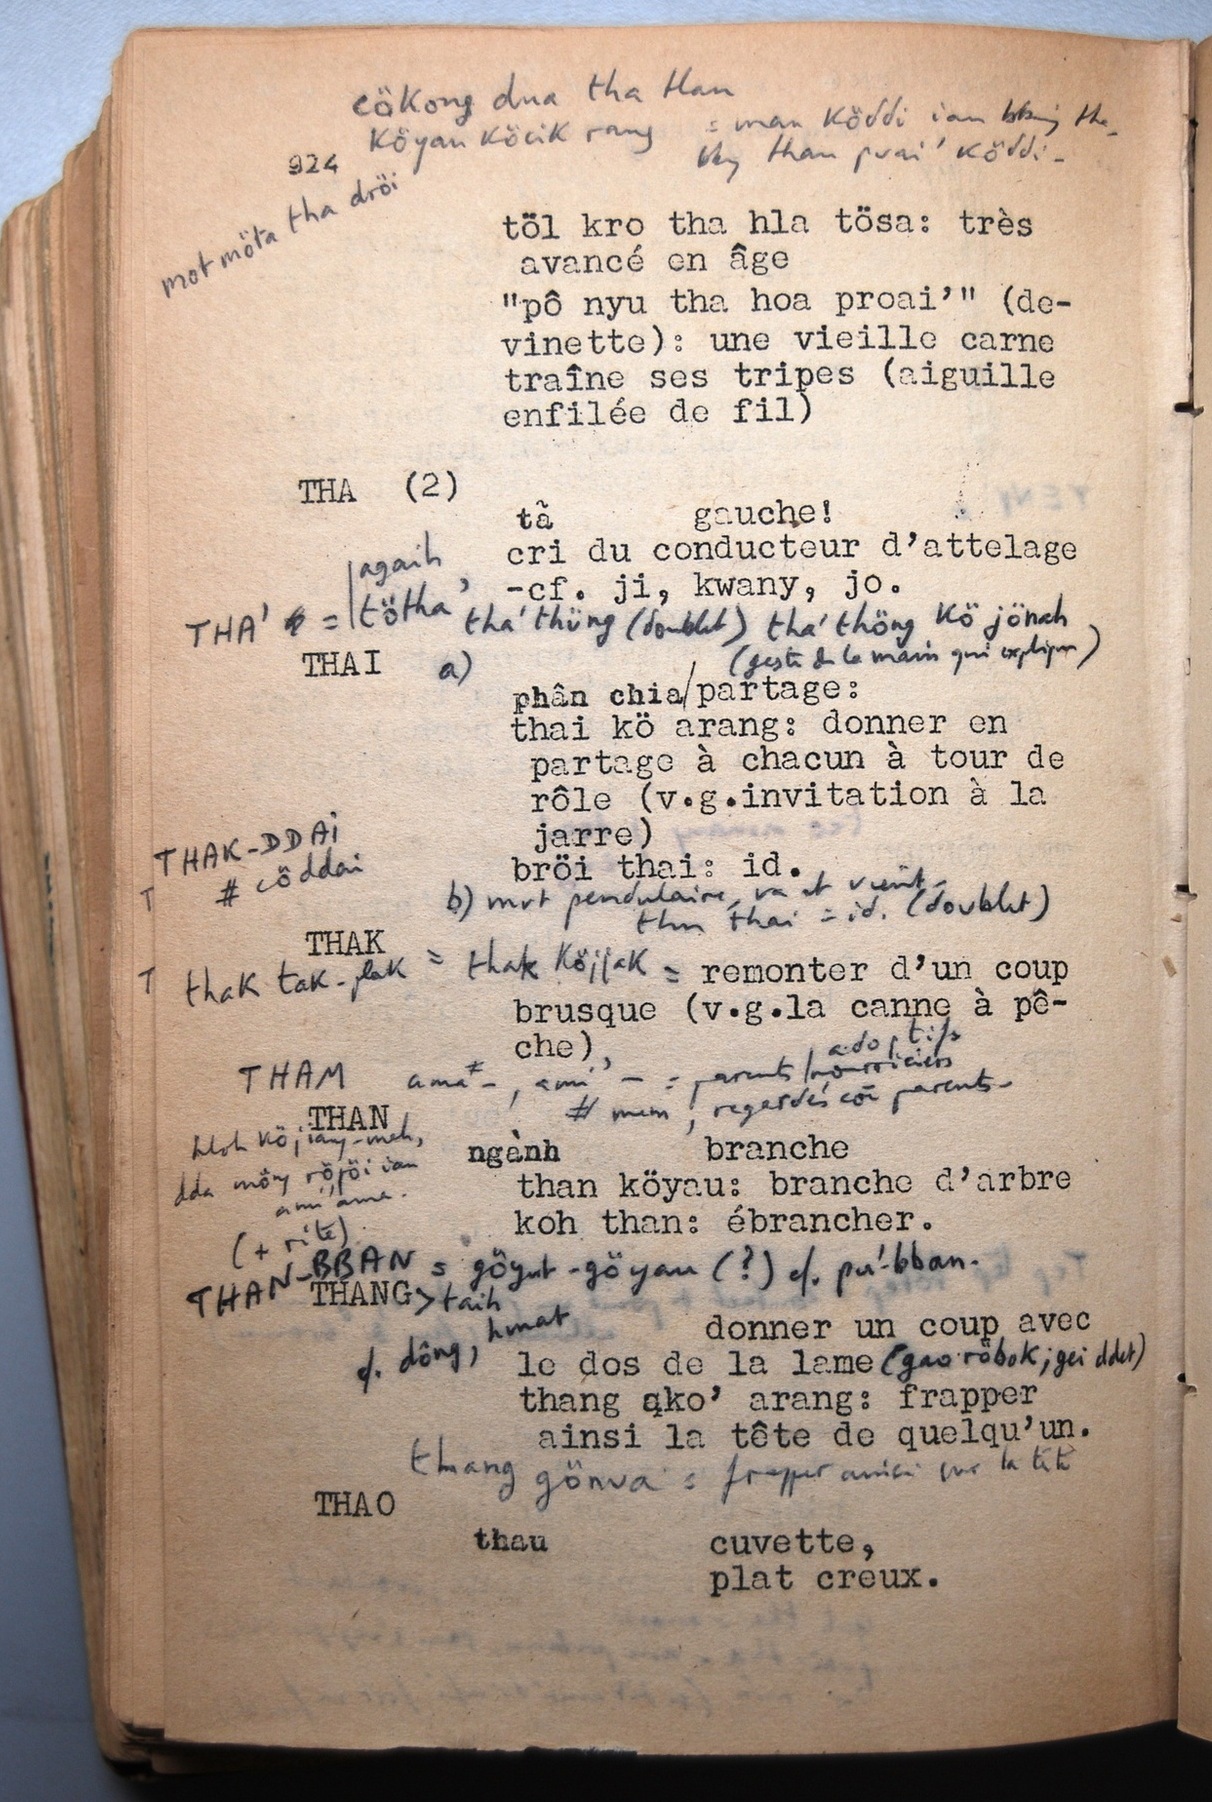 cökong dua tha tlan
köyan köcik rang = man köddi ian
than köddi-
924
mot möta tha dröi
töl kro tha hla tösa: très
avancé en âge
"pô nyu tha hoa proai’" (de-
vinette): une vieille carne
traîne ses tripes (aiguille
enfilée de fil)
THA (2)
tã gauche!
cri du conducteur d’attelage
-cf. ji, kwany, jo.
agaih
THA' = tötha' tha' thüng (doublet) tha' thöng kö jönah
(geste de la main qui explique)
THAI a)
phân chia/partage:
thai kö arang: donner en
partage à chacun à tour de
rôle (v.g.invitation à la
jarre)
THAK-DDAI
# cöddai
T
bröi thai: id.
b) mvt pendulaire, va et vient-
thai = id. (doublet)
THAK
T thak tak-plak = thak köjjak = remonter d’un coup
brusque (v.g.la canne à pê-
che),
adoptifs
THAM ama -, ami' - = parents nourriciers
# mem, regardés parents-
THAN
ngành branche
than köyau: branche d’arbre
koh than: ébrancher.
ami' ama.
(+ rite)
THAN-BBAN = göyut-göyau (?) cf. pu'-bban.
THANG > taih
cf. dông, hmat
donner un coup avec
le dos de la lame (gao röbok; gei ddet)
thang ako’ arang: frapper
ainsi la tête de quelqu’un.
thang gönva = frapper ainsi sur la tête
THAO
thau cuvette,
plat creux.